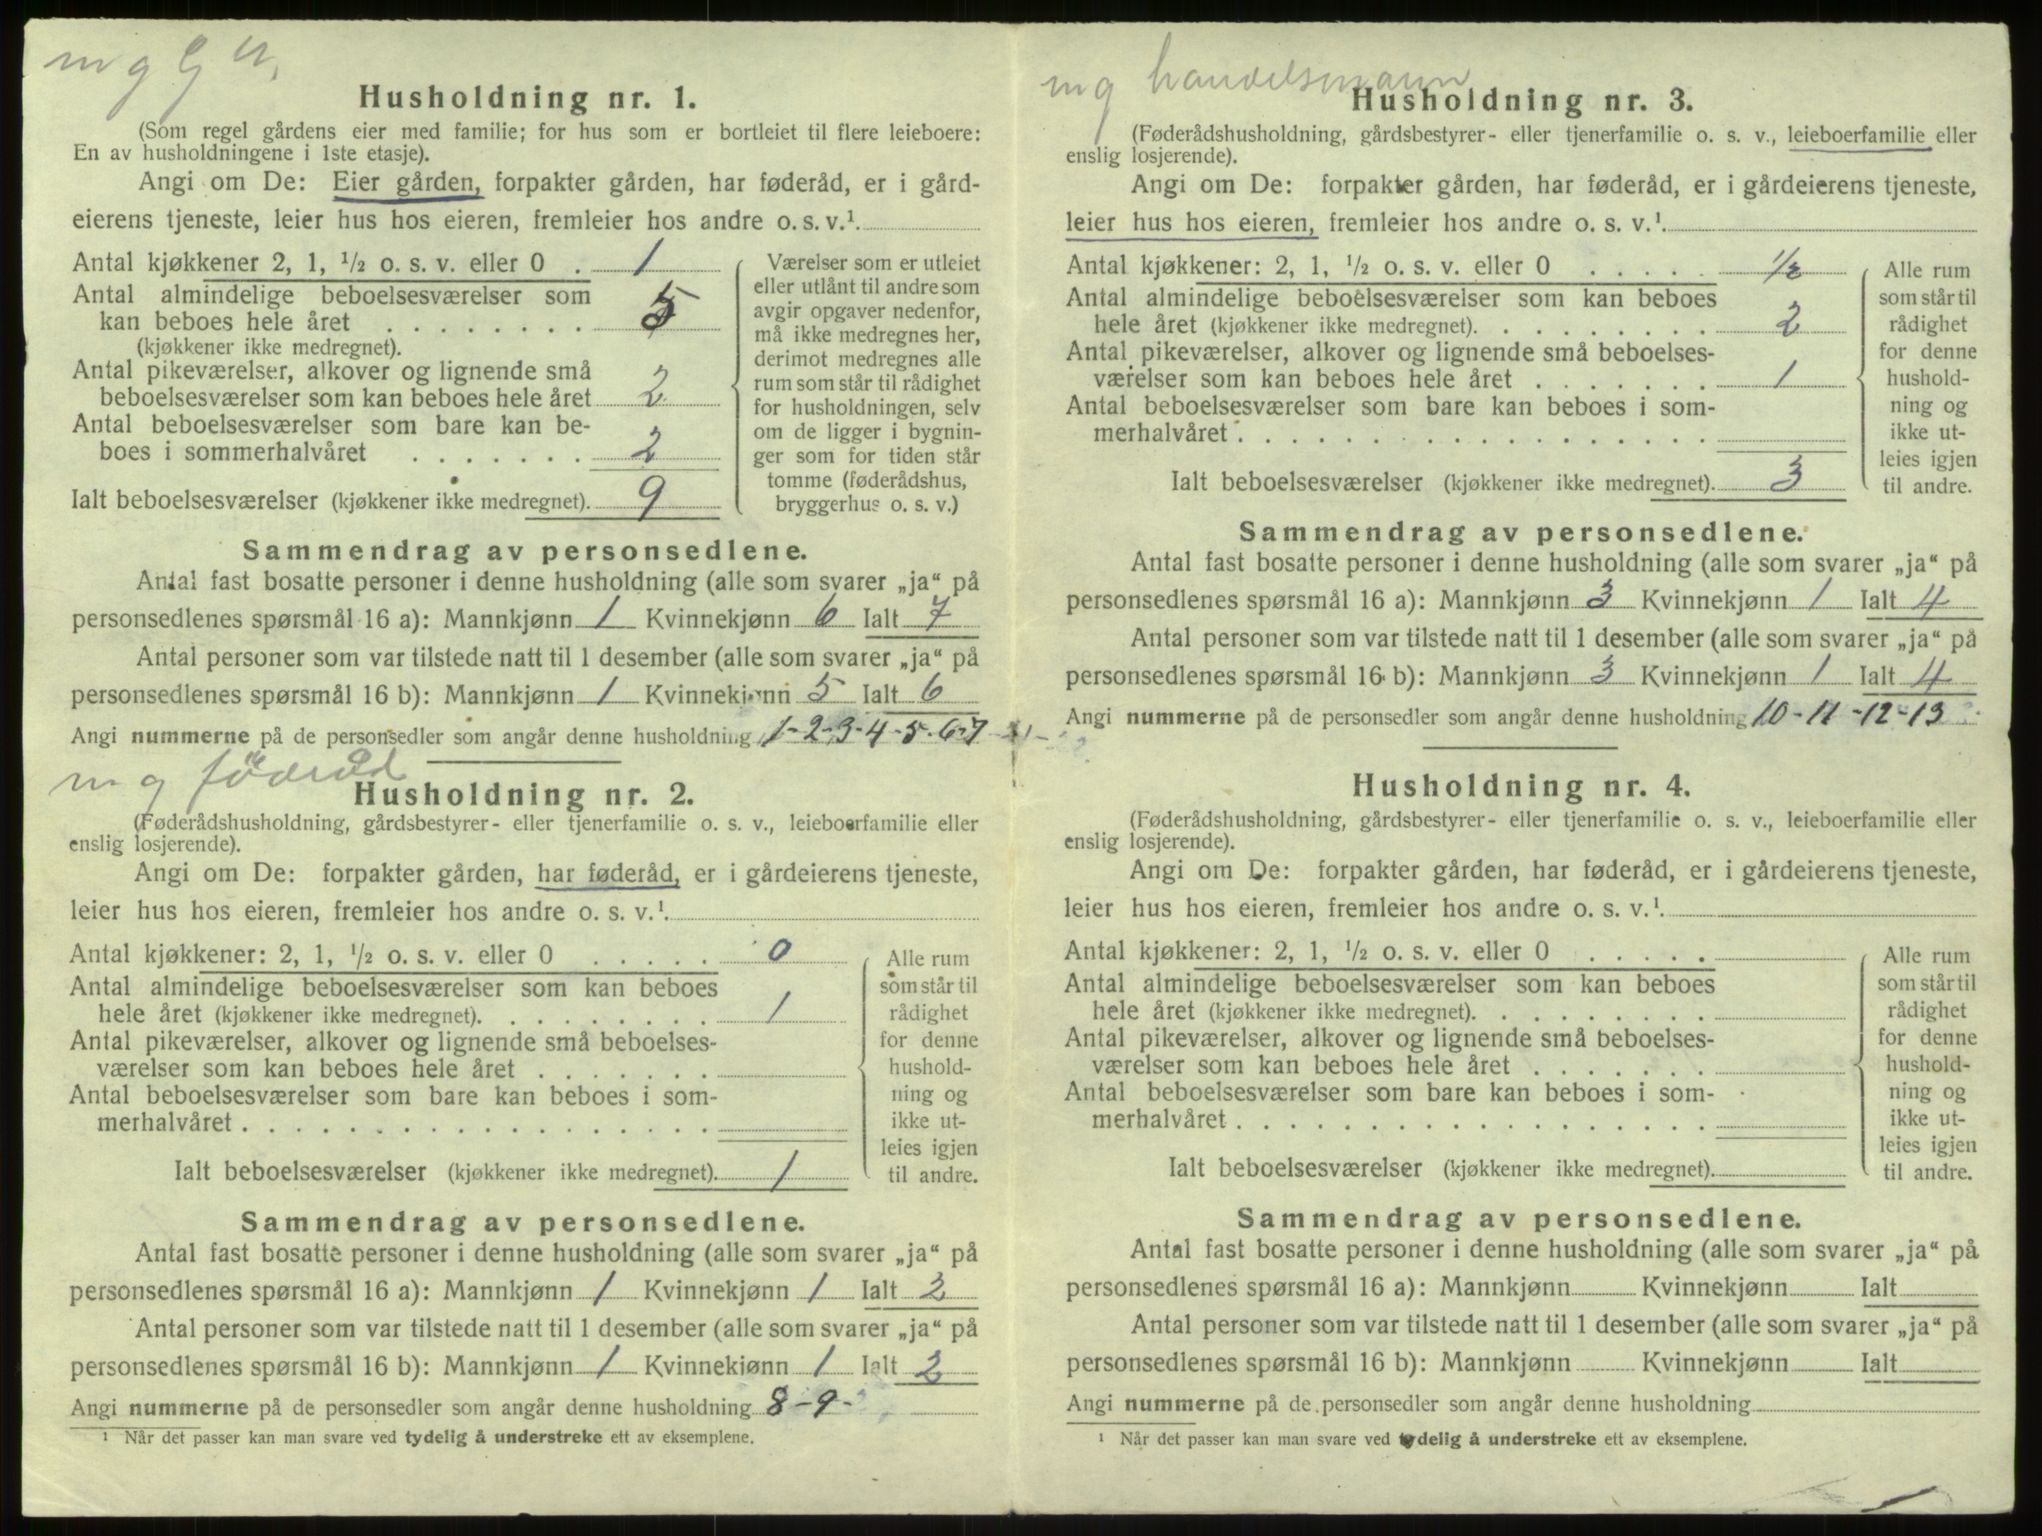 m g G u.
Husholdning nr. 1.
(Som regel gårdens eier med familie; for hus som er bortleiet til flere leieboere:
En av husholdningene i 1ste etasje).
Angi om De: Eier gården, forpakter gården, har føderåd, er i gård-
eierens tjeneste, leier hus hos eieren, fremleier hos andre o. s. v.¹.
Antal kjøkkener 2, 1, ½ o. s. v. eller 0 . 1
Antal almindelige beboelsesværelser som
kan beboes hele året . . . . . . . . 5
(kjøkkener ikke medregnet).
Antal pikeværelser, alkover og lignende små
beboelsesværelser som kan beboes hele året 2
Antal beboelsesværelser som bare kan be-
boes i sommerhalvåret . . . . . . . 2
Ialt beboelsesværelser (kjøkkener ikke medregnet). 9
Værelser som er utleiet
eller utlånt til andre som
avgir opgaver nedenfor,
må ikke medregnes her,
derimot medregnes alle
rum som står til rådighet
for husholdningen, selv
om de ligger i bygnin-
ger som for tiden står
tomme (føderådshus,
bryggerhus o. s. v.)
Sammendrag av personsedlene.
Antal fast bosatte personer i denne husholdning (alle som svarer „ja“ på
personsedlenes spørsmål 16 a): Mannkjønn 1 Kvinnekjønn 6 Ialt 7
Antal personer som var tilstede natt til 1 desember (alle som svarer „ja“ på
personsedlenes spørsmål 16 b): Mannkjønn 1 Kvinnekjønn 5 Ialt 6
Angi nummerne på de personsedler som angår denne husholdning 1-2-3-4-5-6-7
m g føderåd
Husholdning nr. 2.
(Føderådshusholdning, gårdsbestyrer- eller tjenerfamilie o. s. v., leieboerfamilie eller
enslig losjerende).
Angi om De: forpakter gården, har føderåd, er i gårdeierens tjeneste,
leier hus hos eieren, fremleier hos andre o. s. v.¹.
Antal kjøkkener: 2, 1, ½ o. s. v. eller 0 . . . . . 0
Antal almindelige beboelsesværelser som kan beboes
hele året (kjøkkener ikke medregnet). . . . . . . . . 1
Antal pikeværelser, alkover og lignende små beboelses-
værelser som kan beboes hele året . . . . . . .
Antal beboelsesværelser som bare kan beboes i som-
merhalvåret . . . . . . . . . . . . . . . . . .
Ialt beboelsesværelser (kjøkkener ikke medregnet). 1
Alle rum
som står til
rådighet
for denne
hushold-
ning og
ikke ut-
leies igjen
til andre.
Sammendrag av personsedlene.
Antal fast bosatte personer i denne husholdning (alle som svarer „ja“ på
personsedlenes spørsmål 16 a): Mannkjønn 1 Kvinnekjønn 1 Ialt 2
Antal personer som var tilstede natt til 1 desember (alle som svarer „ja“ på
personsedlenes spørsmål 16 b): Mannkjønn 1 Kvinnekjønn 1 Ialt 2
Angi nummerne på de personsedler som angår denne husholdning 8-9-
¹ Når det passer kan man svare ved tydelig å understreke ett av eksemplene.
m g handelsmann
Husholdning nr. 3.
(Føderådshusholdning, gårdsbestyrer- eller tjenerfamilie o. s. v., leieboerfamilie eller
enslig losjerende).
Angi om De: forpakter gården, har føderåd, er i gårdeierens tjeneste,
leier hus hos eieren, fremleier hos andre o. s. v.¹.
Antal kjøkkener: 2, 1, ½ o. s. v. eller 0 . . . . . ½
Antal almindelige beboelsesværelser som kan beboes
hele året (kjøkkener ikke medregnet). . . . . . . . . 2
Antal pikeværelser, alkover og lignende små beboelses-
værelser som kan beboes hele året . . . . . . . 1
Antal beboelsesværelser som bare kan beboes i som-
merhalvåret . . . . . . . . . . . . . . . . . .
Ialt beboelsesværelser (kjøkkener ikke medregnet). 3
Alle rum
som står til
rådighet
for denne
hushold-
ning og
ikke ut-
leies igjen
til andre.
Sammendrag av personsedlene.
Antal fast bosatte personer i denne husholdning (alle som svarer „ja“ på
personsedlenes spørsmål 16 a): Mannkjønn 3 Kvinnekjønn 1 Ialt 4
Antal personer som var tilstede natt til 1 desember (alle som svarer „ja“ på
personsedlenes spørsmål 16 b): Mannkjønn 3 Kvinnekjønn 1 Ialt 4
Angi nummerne på de personsedler som angår denne husholdning 10-11-12-13
Husholdning nr. 4.
(Føderådshusholdning, gårdsbestyrer- eller tjenerfamilie o. s. v., leieboerfamilie eller
enslig losjerende).
Angi om De: forpakter gården, har føderåd, er i gårdeierens tjeneste,
leier hus hos eieren, fremleier hos andre o. s. v.¹.
Antal kjøkkener: 2, 1, ½ o. s. v. eller 0 . . . . .
Antal almindelige beboelsesværelser som kan beboes
hele året (kjøkkener ikke medregnet). . . . . . . . .
Antal pikeværelser, alkover og lignende små beboelses-
værelser som kan beboes hele året . . . . . . .
Antal beboelsesværelser som bare kan beboes i som-
merhalvåret . . . . . . . . . . . . . . . . . .
Ialt beboelsesværelser (kjøkkener ikke medregnet).
Alle rum
som står til
rådighet
for denne
hushold-
ning og
ikke ut-
leies igjen
til andre.
Sammendrag av personsedlene.
Antal fast bosatte personer i denne husholdning (alle som svarer „ja“ på
personsedlenes spørsmål 16 a): Mannkjønn Kvinnekjønn Ialt
Antal personer som var tilstede natt til 1 desember (alle som svarer „ja“ på
personsedlenes spørsmål 16 b): Mannkjønn Kvinnekjønn Ialt
Angi nummerne på de personsedler som angår denne husholdning
¹ Når det passer kan man svare ved tydelig å understreke ett av eksemplene.